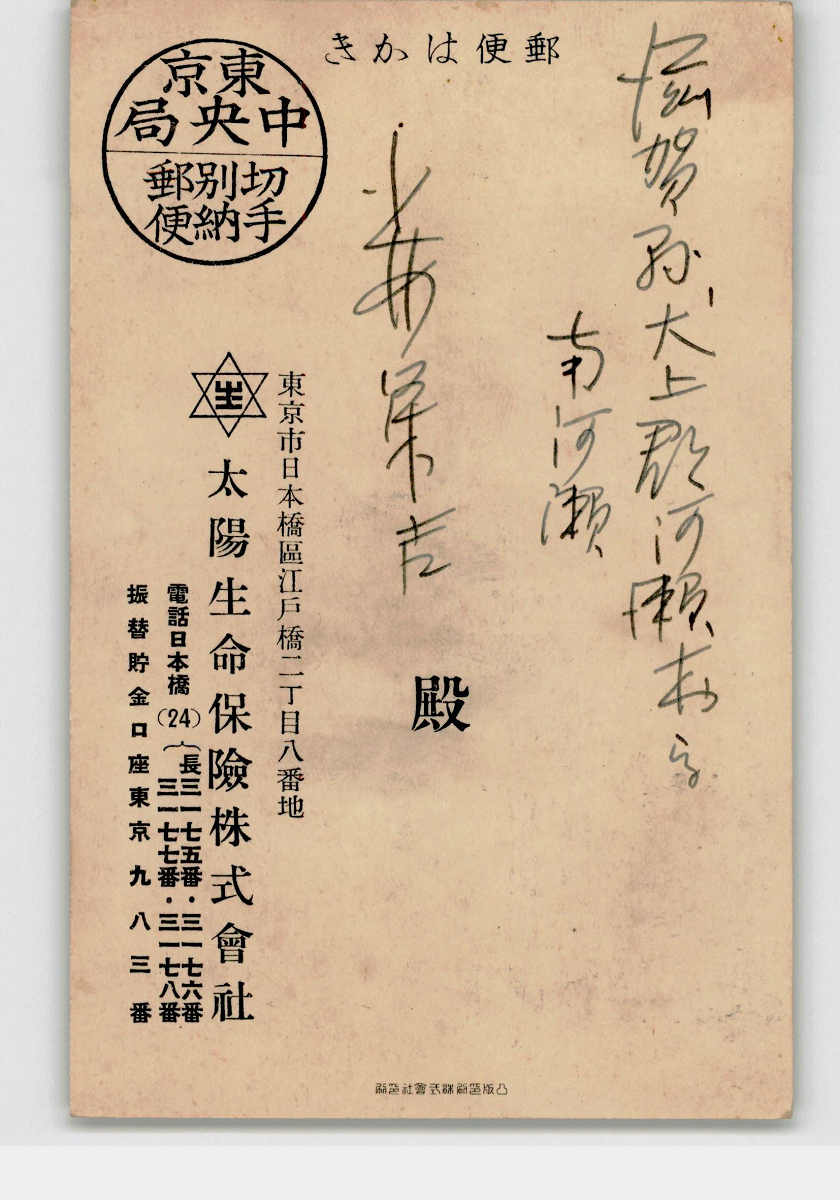 郵便はかき
東京
中央局
切手
別納
郵便
滋賀県犬上郡河瀬村字
南河瀬
吉
殿
生
東京市日本橋區江戸橋二丁目八番地
太陽生命保險株式會社
電話日本橋(24)
長三一七五番・三一七六番
三一七七番・三一七八番
振替貯金口座東京九八三番
凸版印刷株式會社印刷